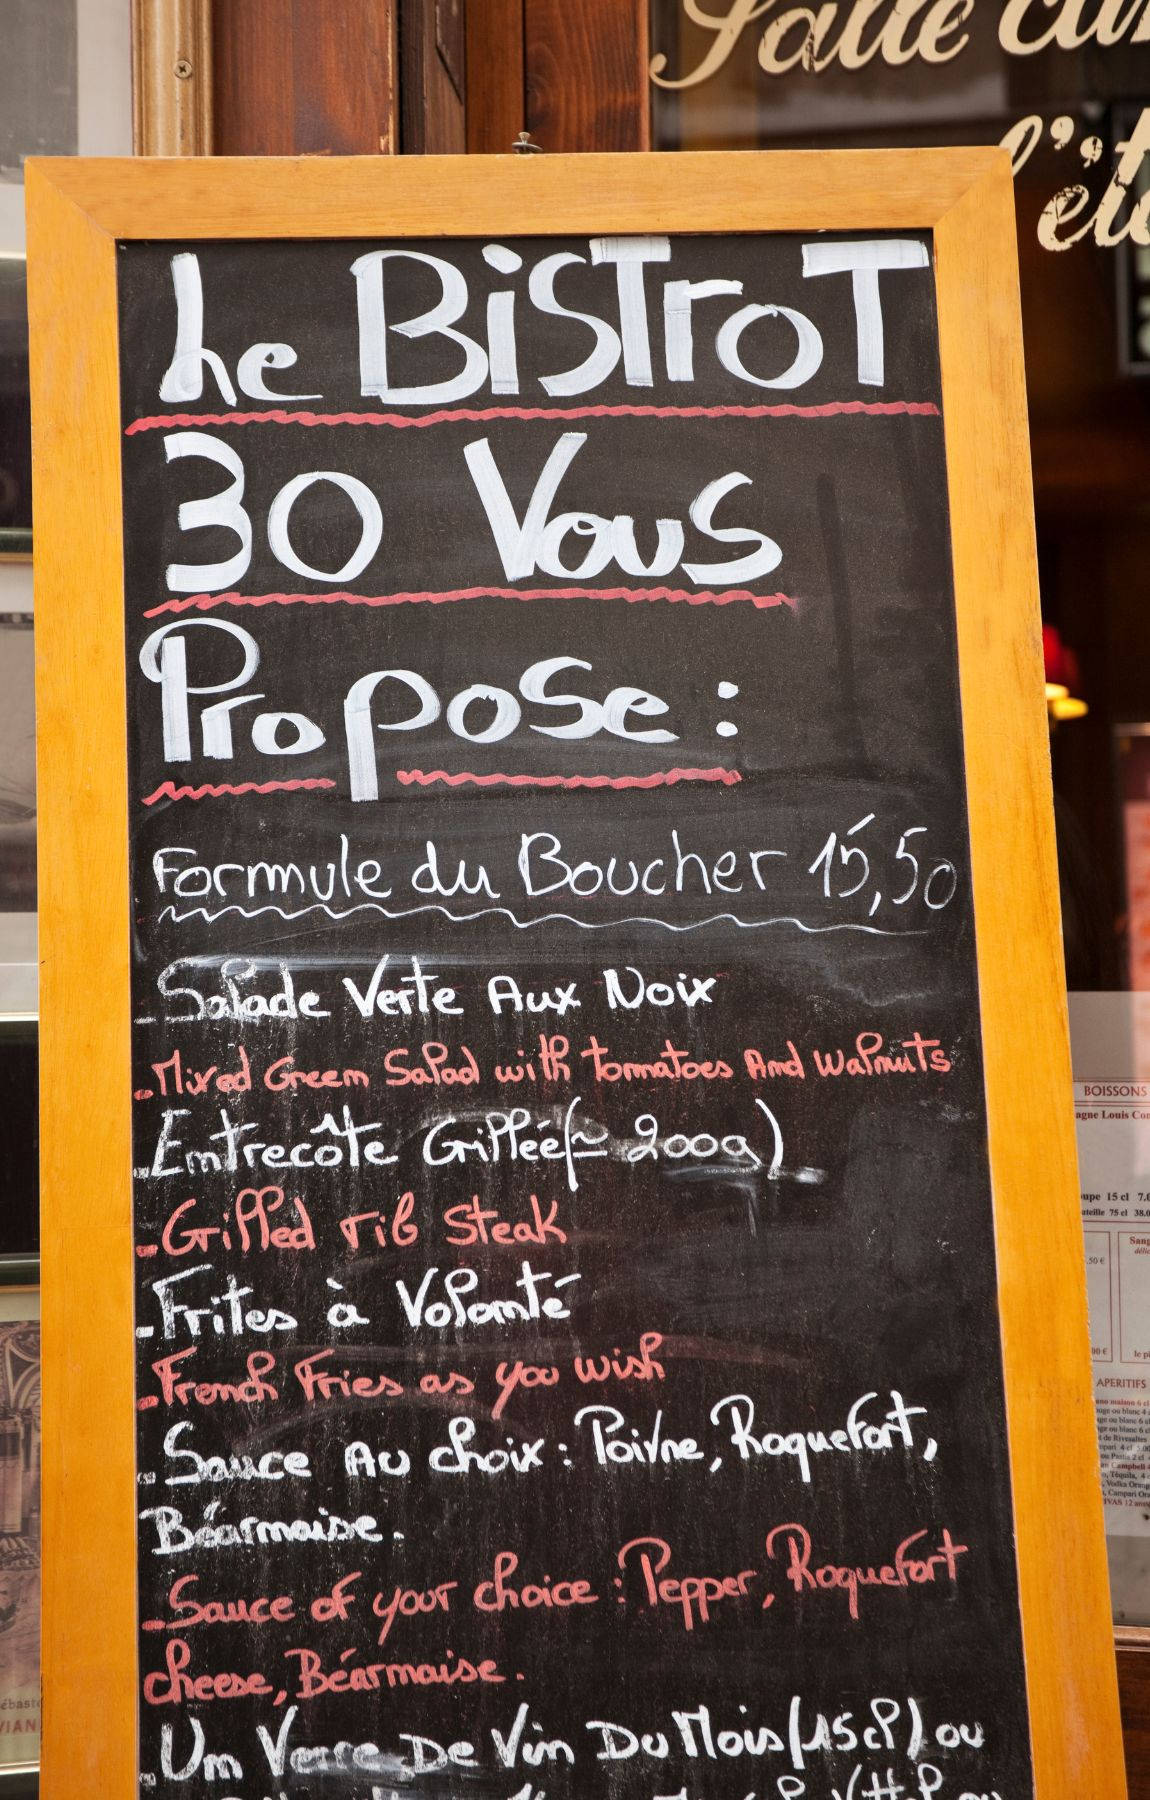 Salle
l'ét
Le BiSTroT
30 Vous
Propose :
Formule du Boucher 15,50
- Salade Verte Aux Noix
- Mixed Green Salad with tomatoes And Walnuts
- Entrecôte Grillée (~ 200g)
- Grilled rib Steak
- Frites à Volonté
- French Fries as you wish
- Sauce Au choix : Poivre, Roquefort,
Béarnaise.
- Sauce of your choice : Pepper, Roquefort
cheese, Béarnaise.
- Un Verre De Vin Du Mois (15cl) ou
BOISSONS
agne Louis
15 cl
75 cl 38.0
.50 €
00 €
le
APERITIFS